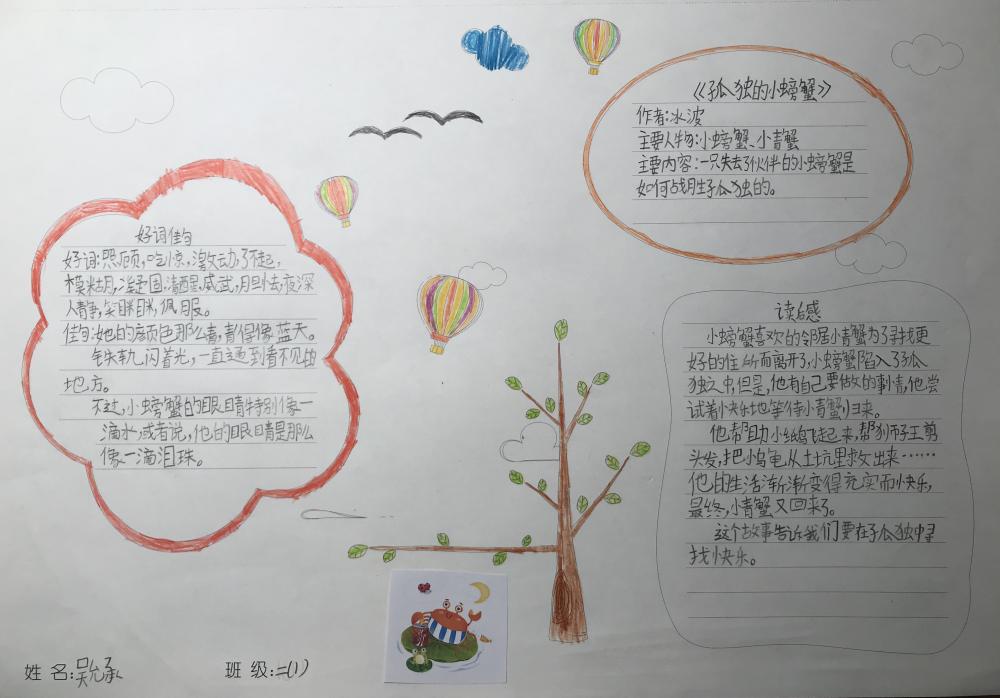 《孤独的小螃蟹》
作者:冰波
主要人物:小螃蟹、小青蟹
主要内容:一只失去了伙伴的小螃蟹是
如何战胜孤独的。
好词佳句
好词:照顾,吃惊,激动,了不起,
模糊,凝固,清醒,威武,胆怯,夜深
人静,笑眯眯,佩服。
佳句:她的颜色那么青,青得像蓝天。
铁轨闪着光,一直通到看不见的
地方。
不过,小螃蟹的眼睛特别像一
滴水,或者说,他的眼睛是那么
像一滴泪珠。
读后感
小螃蟹喜欢的邻居小青蟹为了寻找更
好的住所而离开了,小螃蟹陷入了孤
独之中,但是,他有自己要做的事情,他尝
试着快乐地等待小青蟹归来。
他帮助小纸鸟飞起来,帮狮子王剪
头发,把小乌龟从土坑里救出来……
他的生活渐渐变得充实而快乐,
最终,小青蟹又回来了。
这个故事告诉我们要在孤独中寻
找快乐。
姓名:吴允承
班级:二(1)